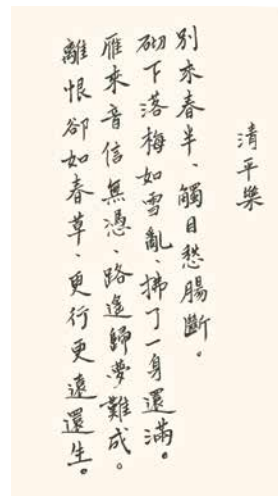 清平樂
別來春半、觸目愁腸斷。
砌下落梅如雪亂、拂了一身還滿。
雁來音信無憑、路遙歸夢難成。
離恨卻如春草、更行更遠還生。